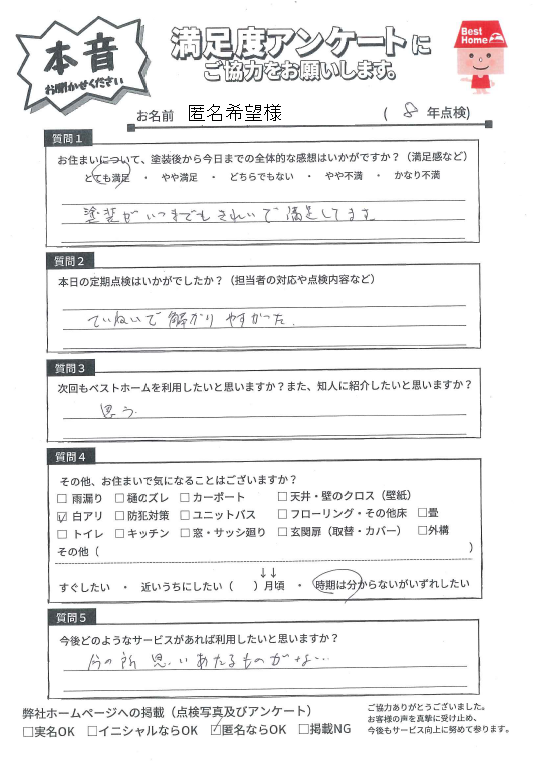 本音
お聞かせください
満足度アンケートに
ご協力をお願いします。
Best Home
お名前 匿名希望様 ( 8 年点検)
質問1
お住まいについて、塗装後から今日までの全体的な感想はいかがですか?(満足感など)
とても満足 ・ やや満足 ・ どちらでもない ・ やや不満 ・ かなり不満
塗装がいつまでもきれいで満足してます。
質問2
本日の定期点検はいかがでしたか?(担当者の対応や点検内容など)
ていねいで解かりやすかった.
質問3
次回もベストホームを利用したいと思いますか?また、知人に紹介したいと思いますか?
思う
質問4
その他、お住まいで気になることはございますか?
□ 雨漏り □ 樋のズレ □ カーポート □ 天井・壁のクロス(壁紙)
☑ 白アリ □ 防犯対策 □ ユニットバス □ フローリング・その他床 □畳
□ トイレ □ キッチン □ 窓・サッシ廻り □ 玄関扉(取替・カバー) □外構
その他( )
↓↓
すぐしたい ・ 近いうちにしたい( )月頃 ・ 時期は分からないがいずれしたい
質問5
今後どのようなサービスがあれば利用したいと思いますか?
今の所思いあたるものがない…
弊社ホームページへの掲載(点検写真及びアンケート)
□実名OK □イニシャルならOK ☑匿名ならOK □掲載NG
ご協力ありがとうございました。
お客様の声を真摯に受け止め、
今後もサービス向上に努めて参ります。